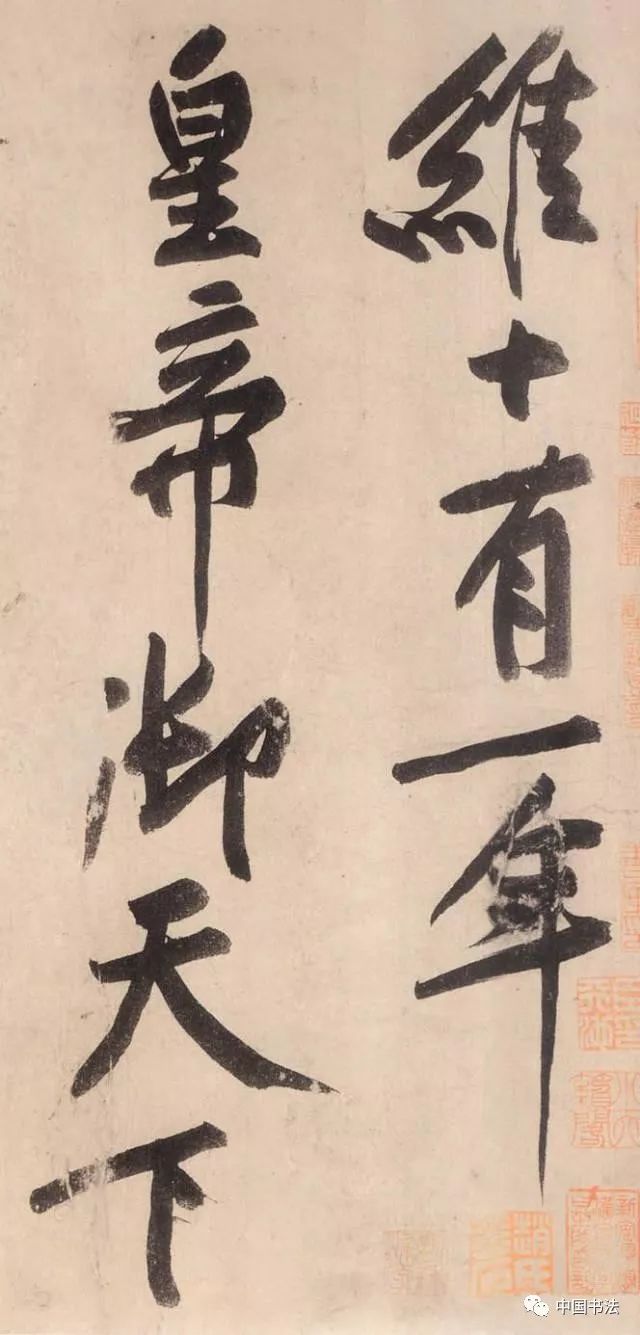 維十有一年
皇帝御天下
趙氏
中国书法